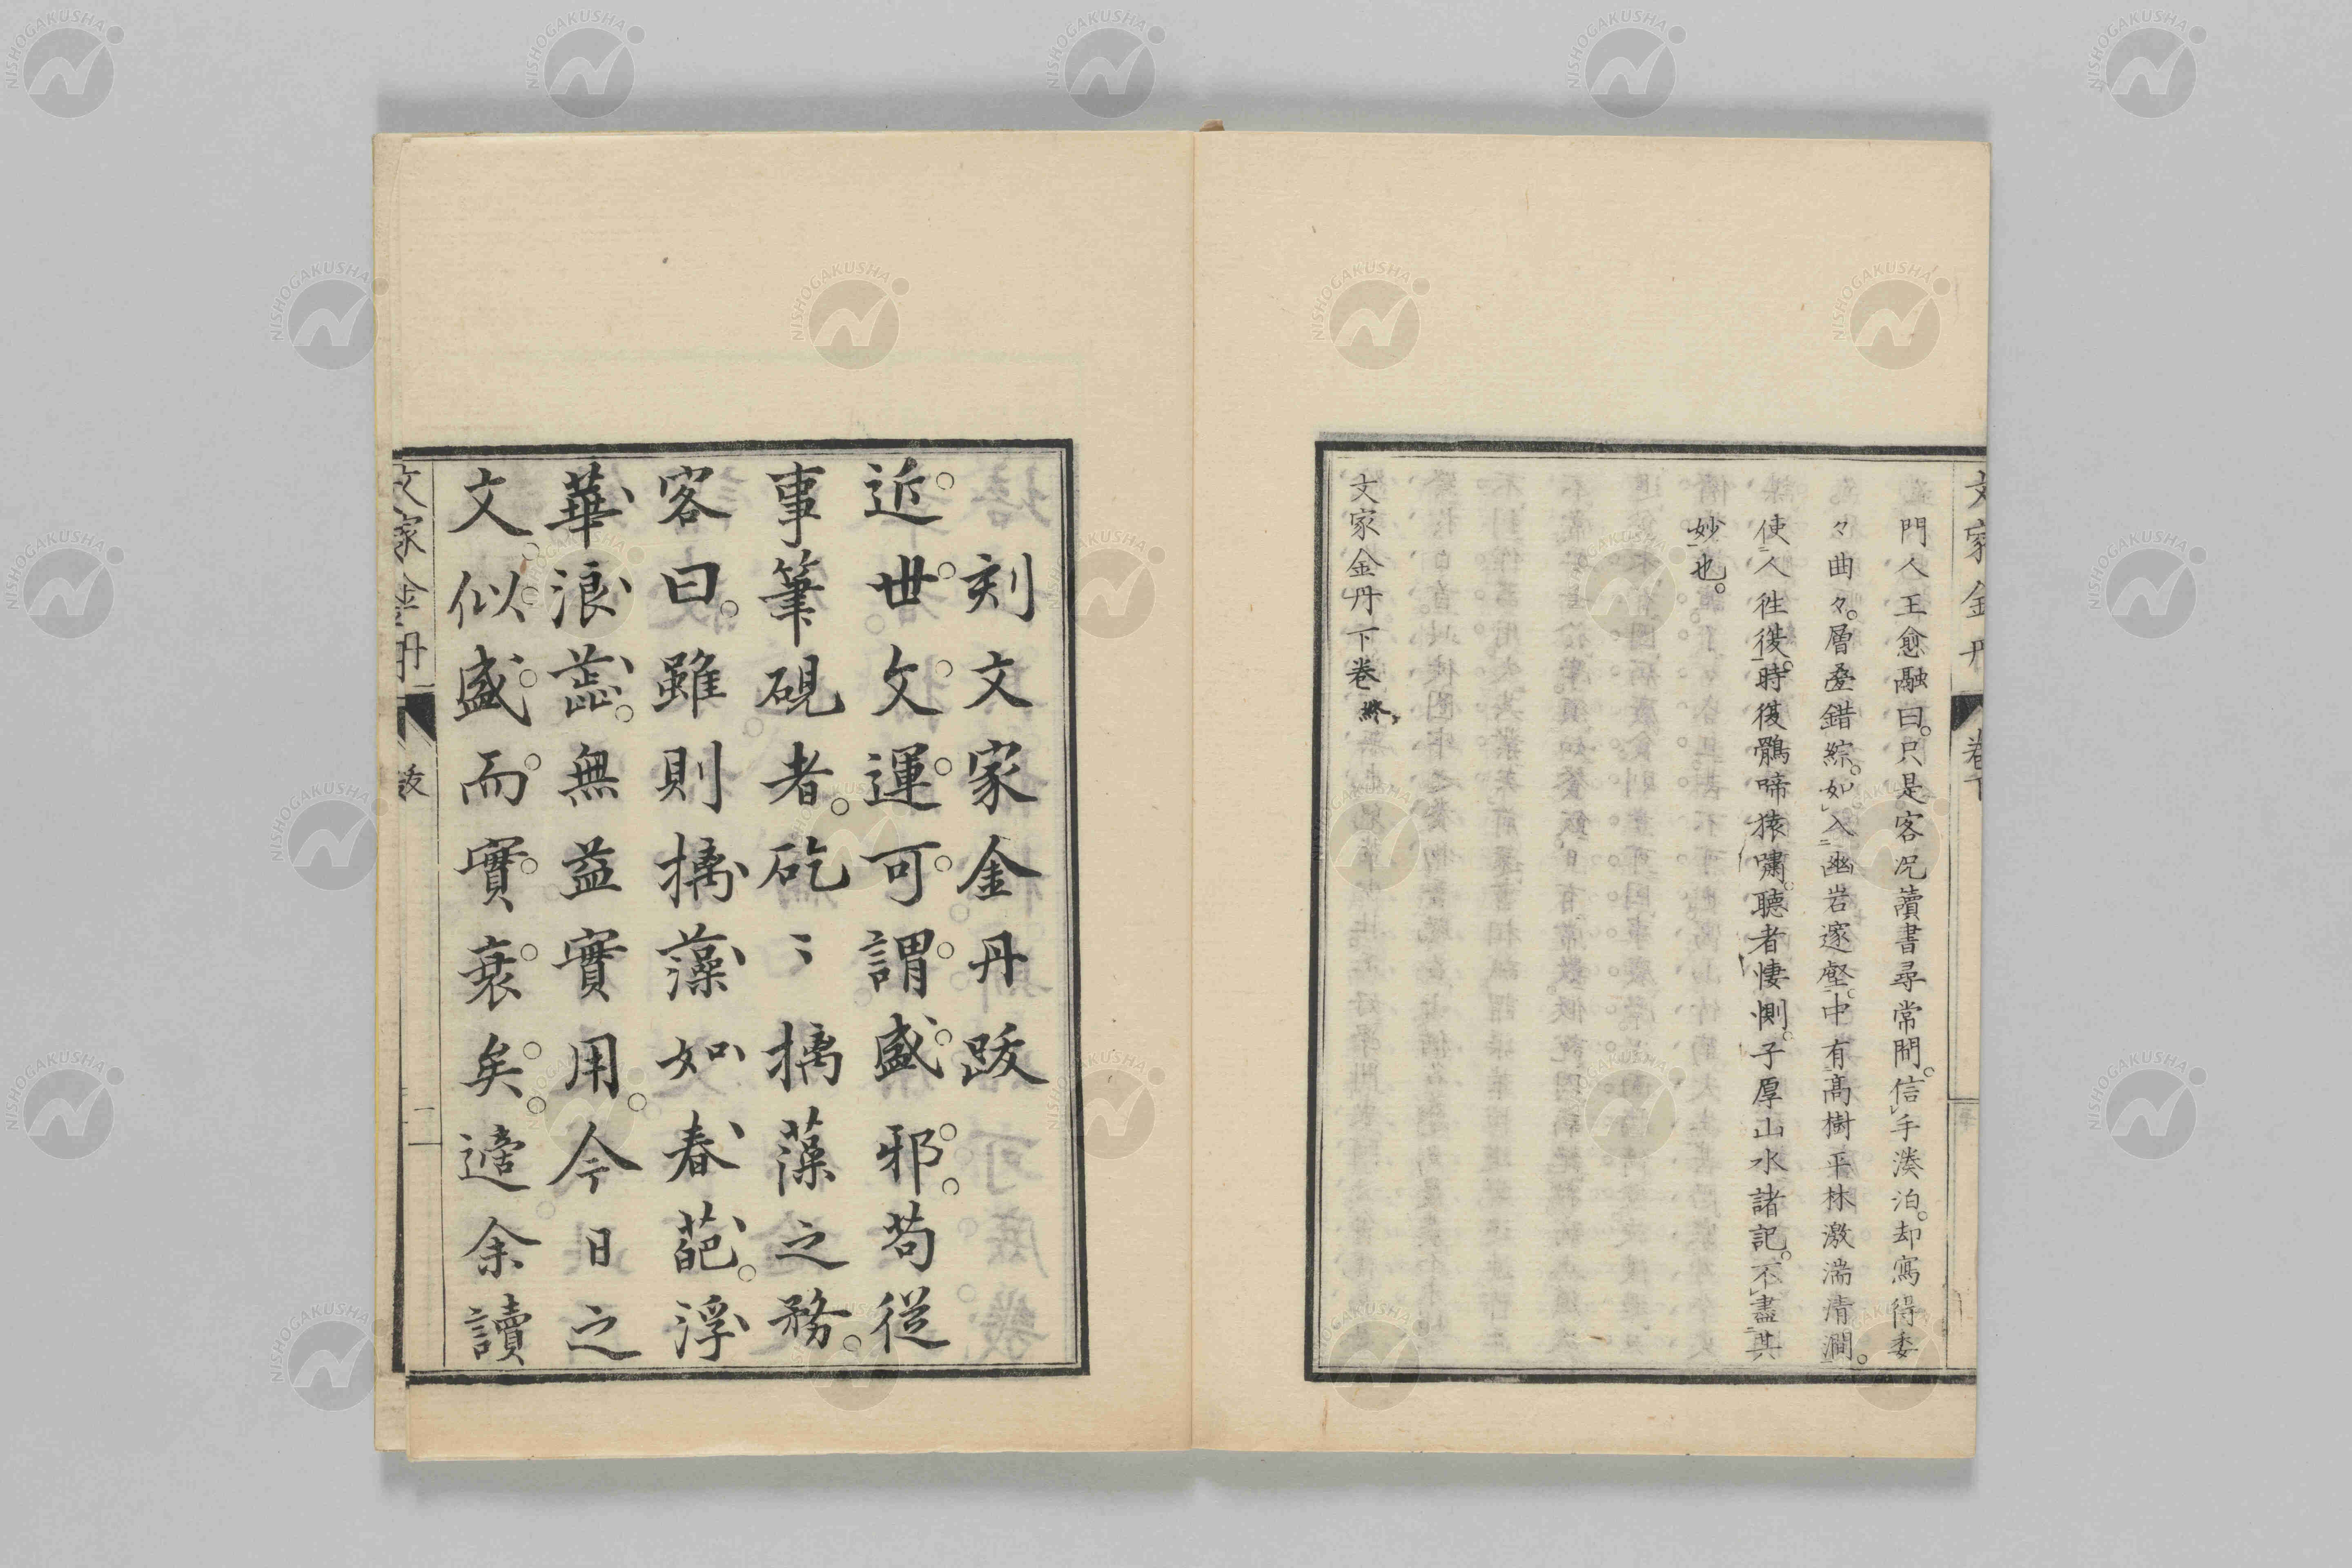 門人王愈融曰。只是客况。讀書尋常間。信手湊泊。却寫得委
々曲々。層疊錯綜。如入幽岩邃壑。中有髙樹平林激湍清澗。
使人徃復。時復鶻啼猿嘯。聽者悽惻。子厚山水諸記。不盡其
妙也。
文家金丹下卷終
文家金丹
卷下
刻文家金丹跋
近世文運可謂盛邪。苟從
事筆硯者。矻〻摛藻之務。
客曰。雖則摛藻如春葩。浮
華浪蕋。無益實用。今日之
文似盛而實衰矣。適余讀
文家金丹
跋
一
NISHOGAKUSHA